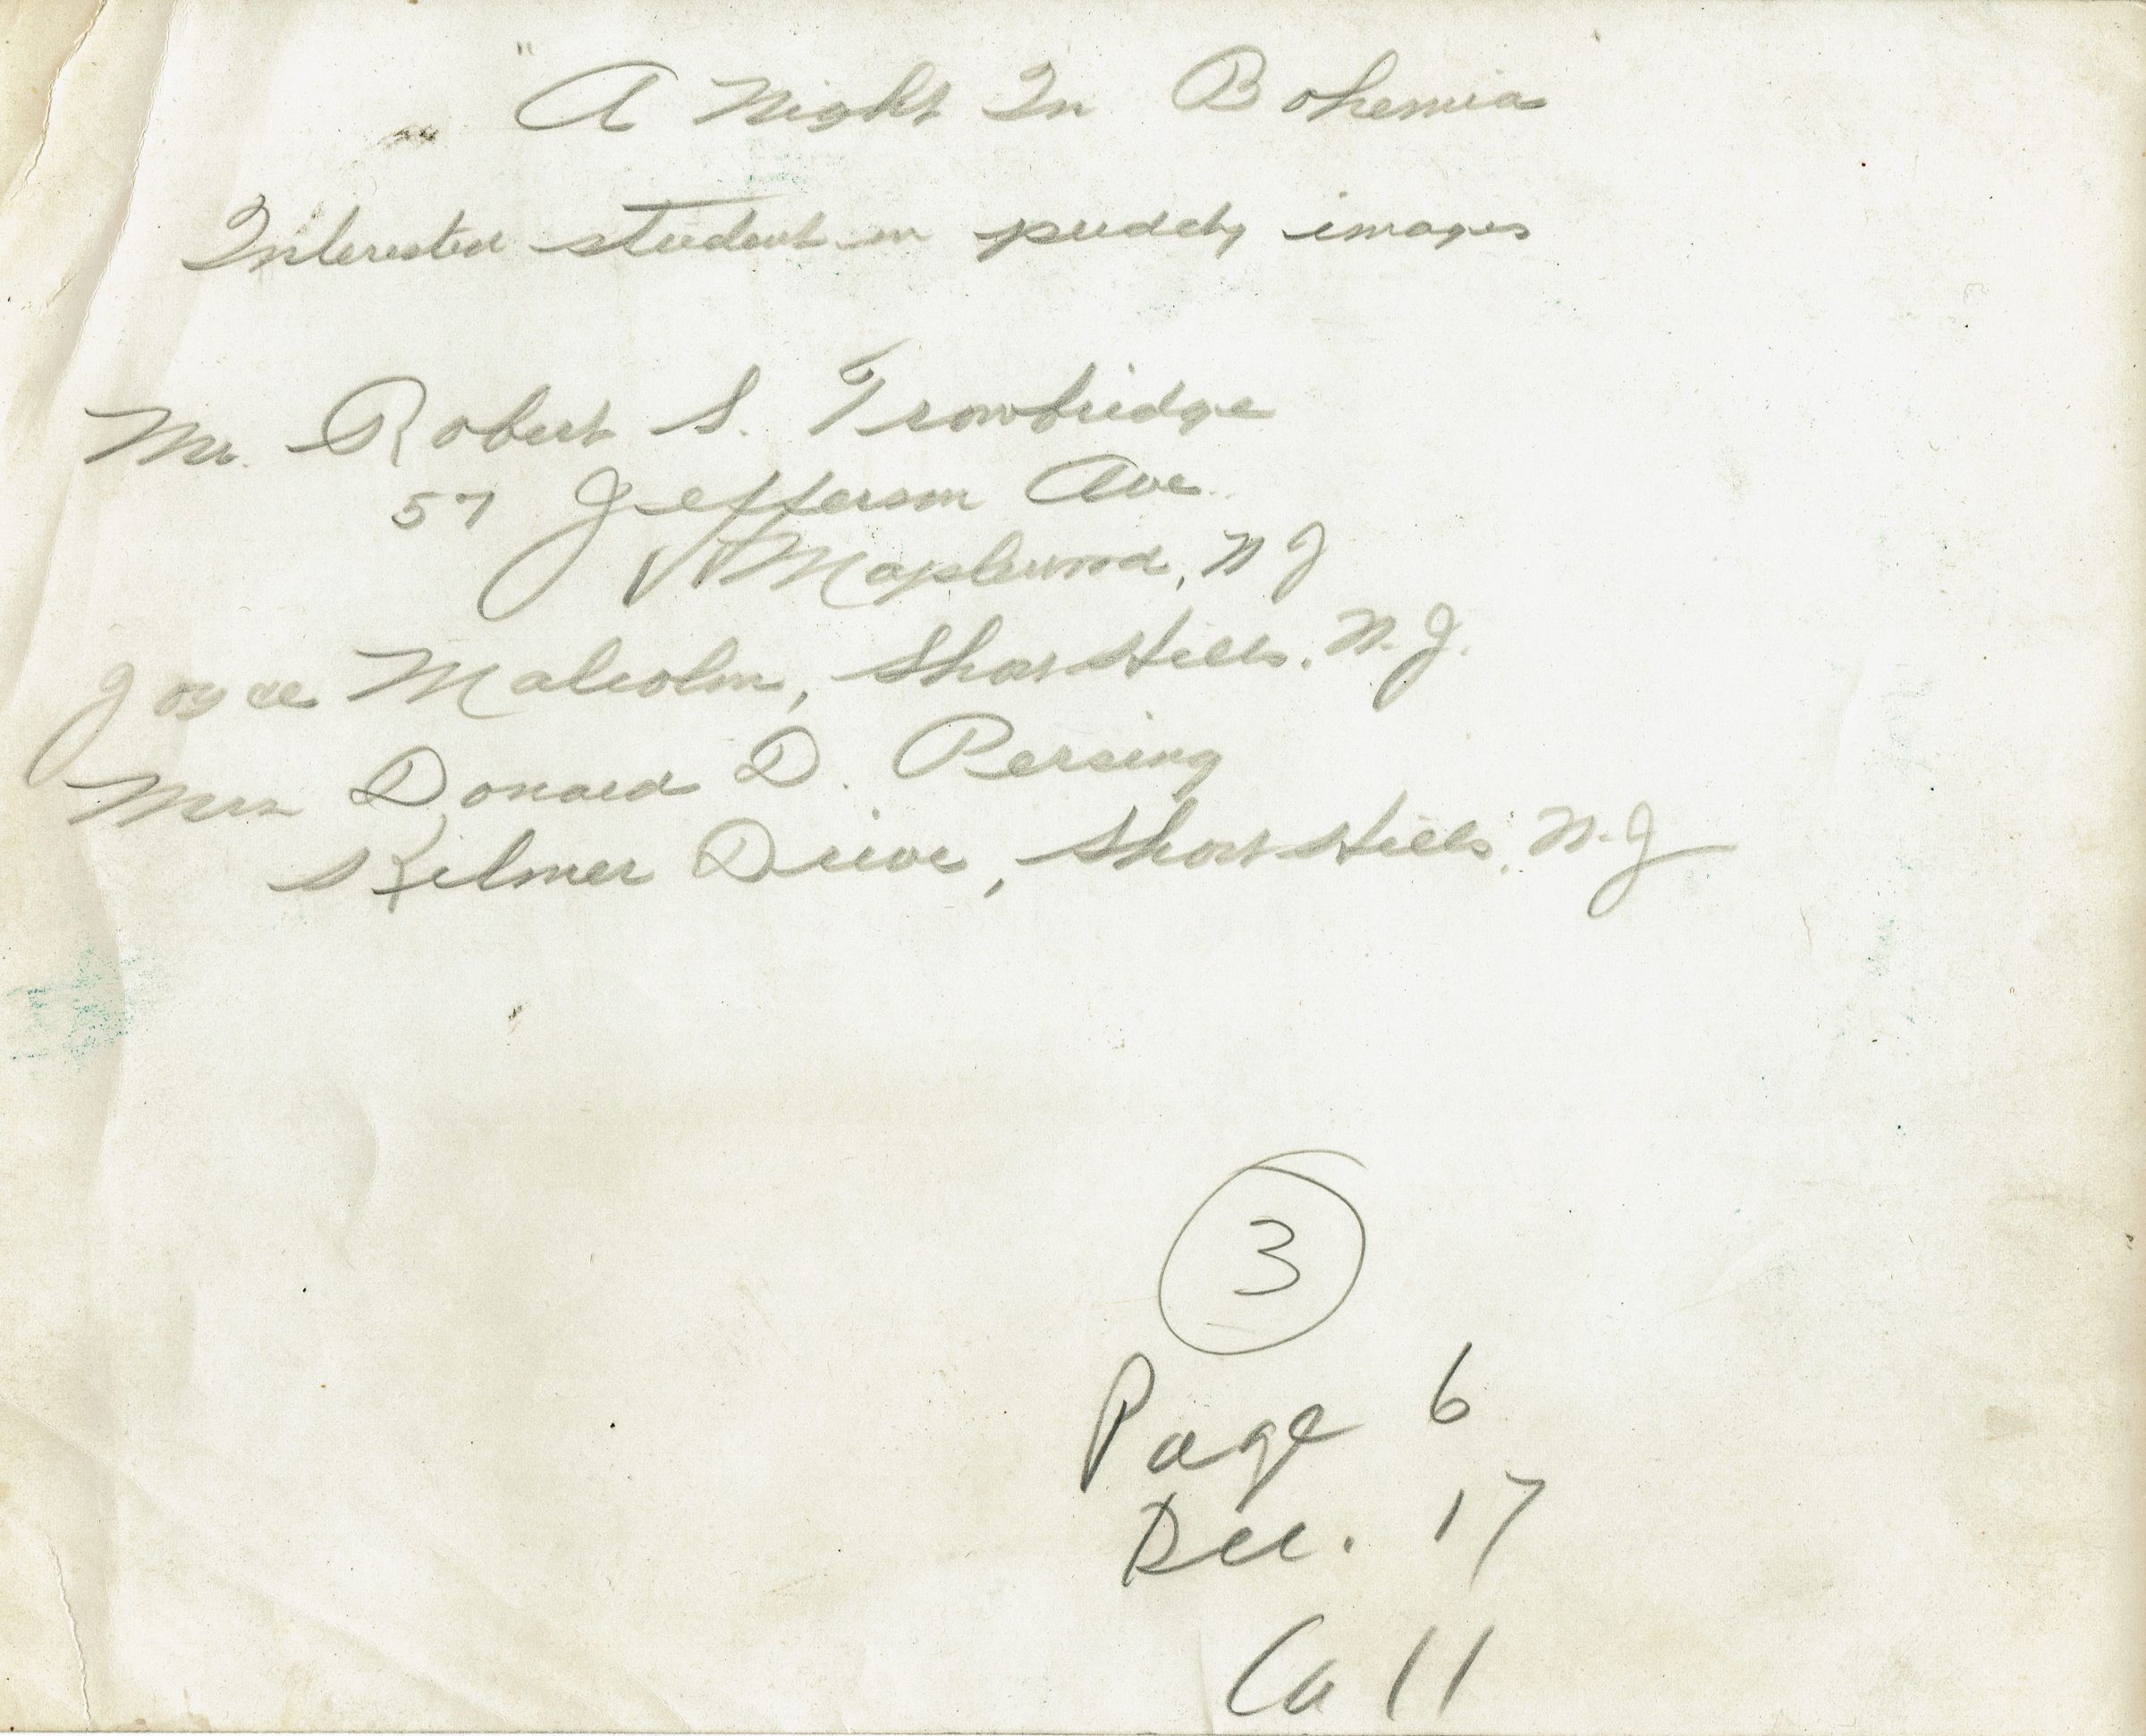 "A Night In Bohemia
Interested student in puddty images
Mr. Robert S. Trowbridge
57 Jefferson Ave
Maplewood, N J
Joyce Malcolm, Short Hills, N.J.
Mrs Donald D. Persing
Kilmer Drive, Short Hills, N.J
3
Page 6
Dec. 17
Call